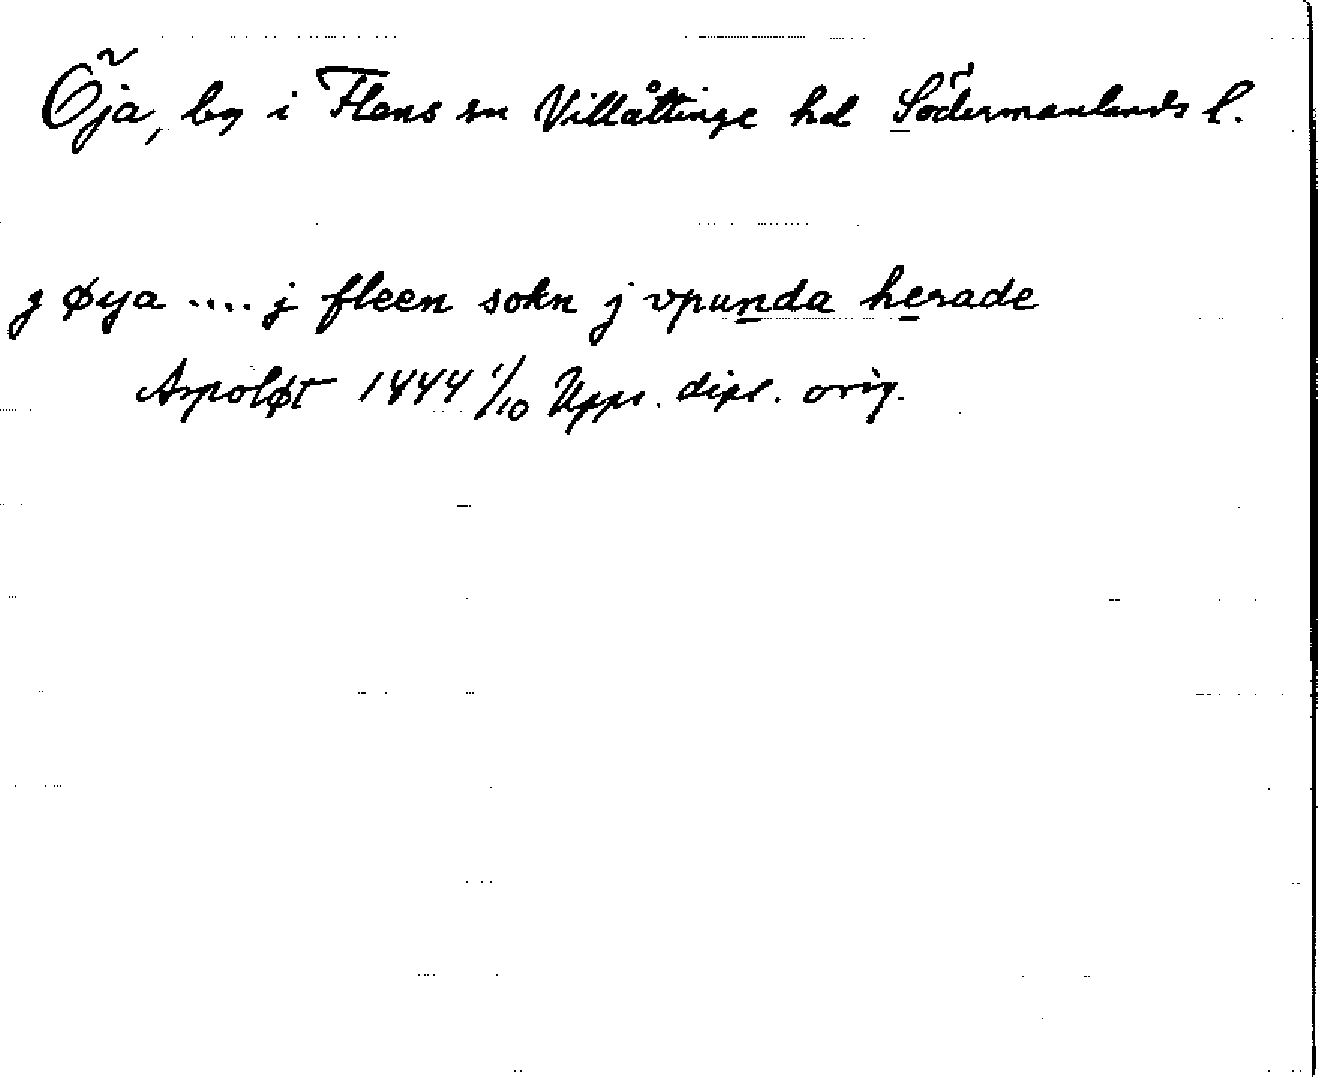 Öja, by i Flens sn Villåttinge hd Södermanlands l.
j øya .... j fleen sokn j vpunda herade
Aspoløt 1444 1/10 Upps. dipl. orig.